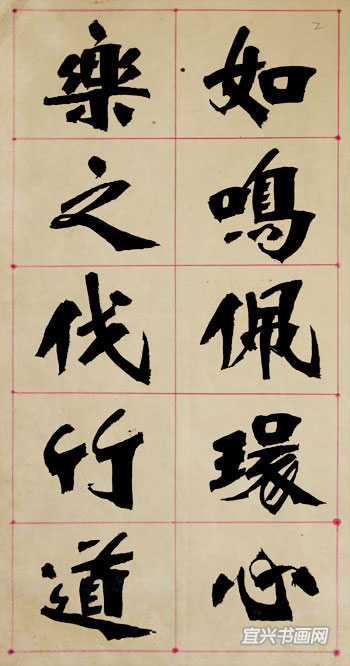 如鳴佩環心
樂之伐竹道
2
宜兴书画网